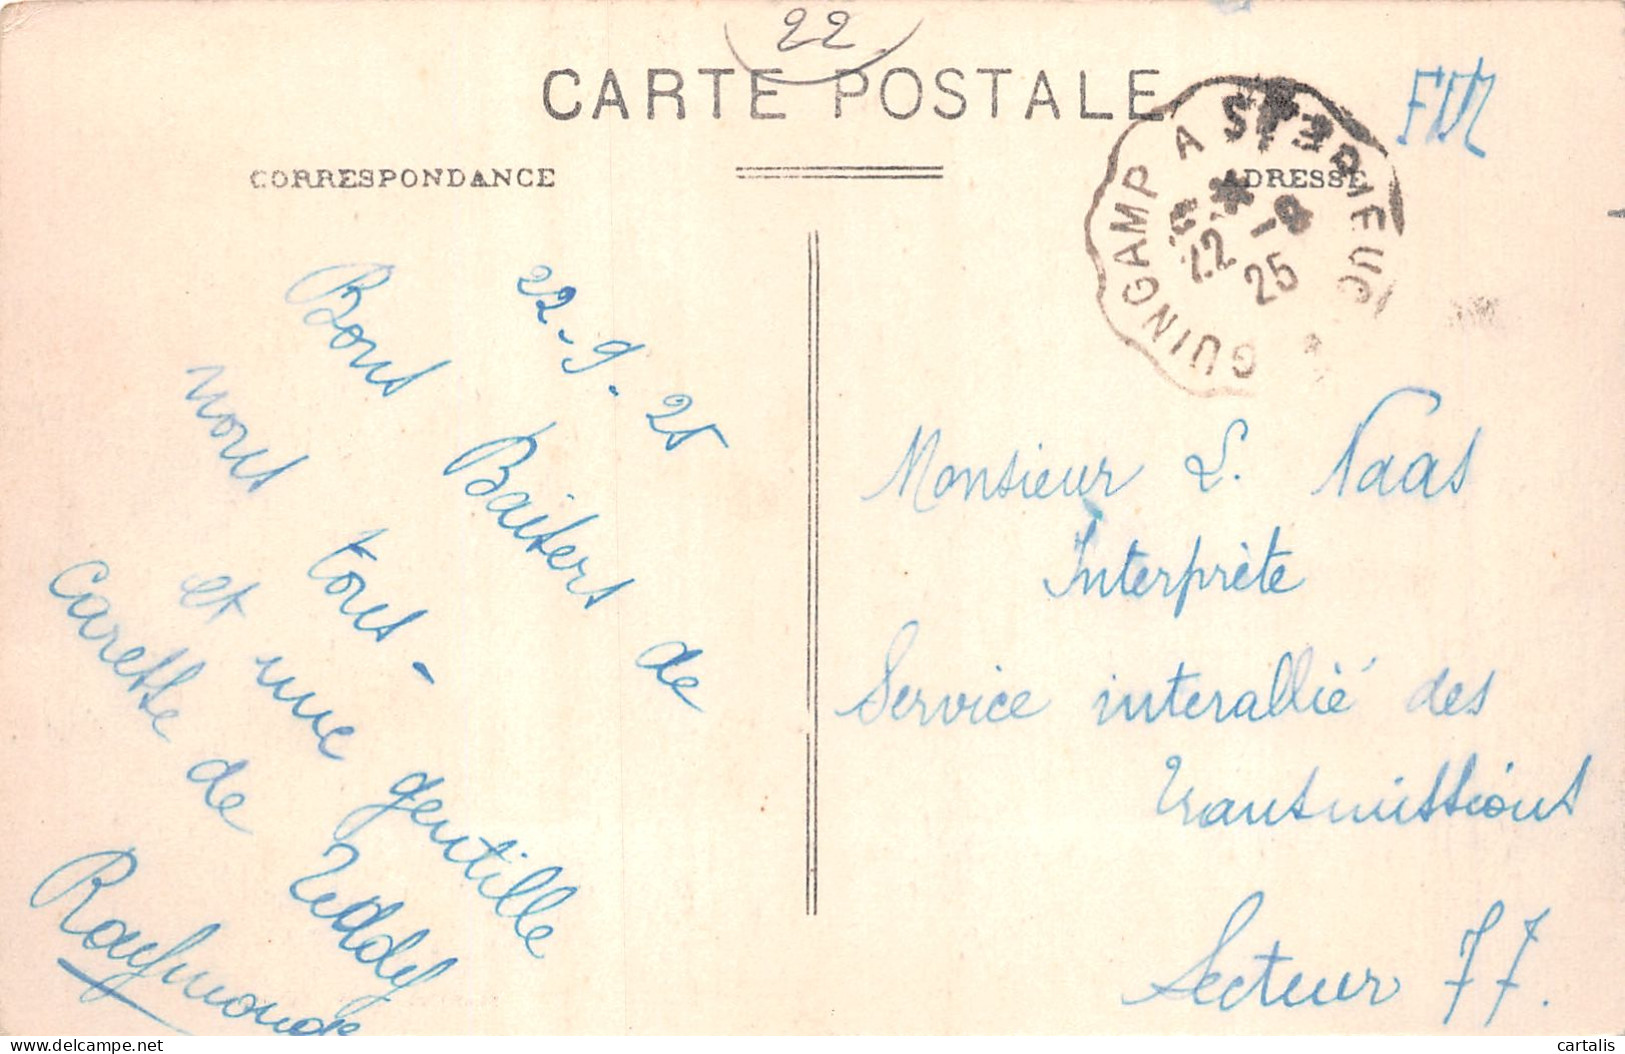 22
CARTE POSTALE
FM
CORRESPONDANCE
ADRESSE
GUINGAMP A ST BRIEUC
22 -9
25
22-9-25
Bons Baisers de
nous tous -
et une gentille
caresse de Teddy
Raymonde
Monsieur L. Naas
Interprète
Service interallié des
transmissions
Secteur 77.
cartalis
delcampe.net